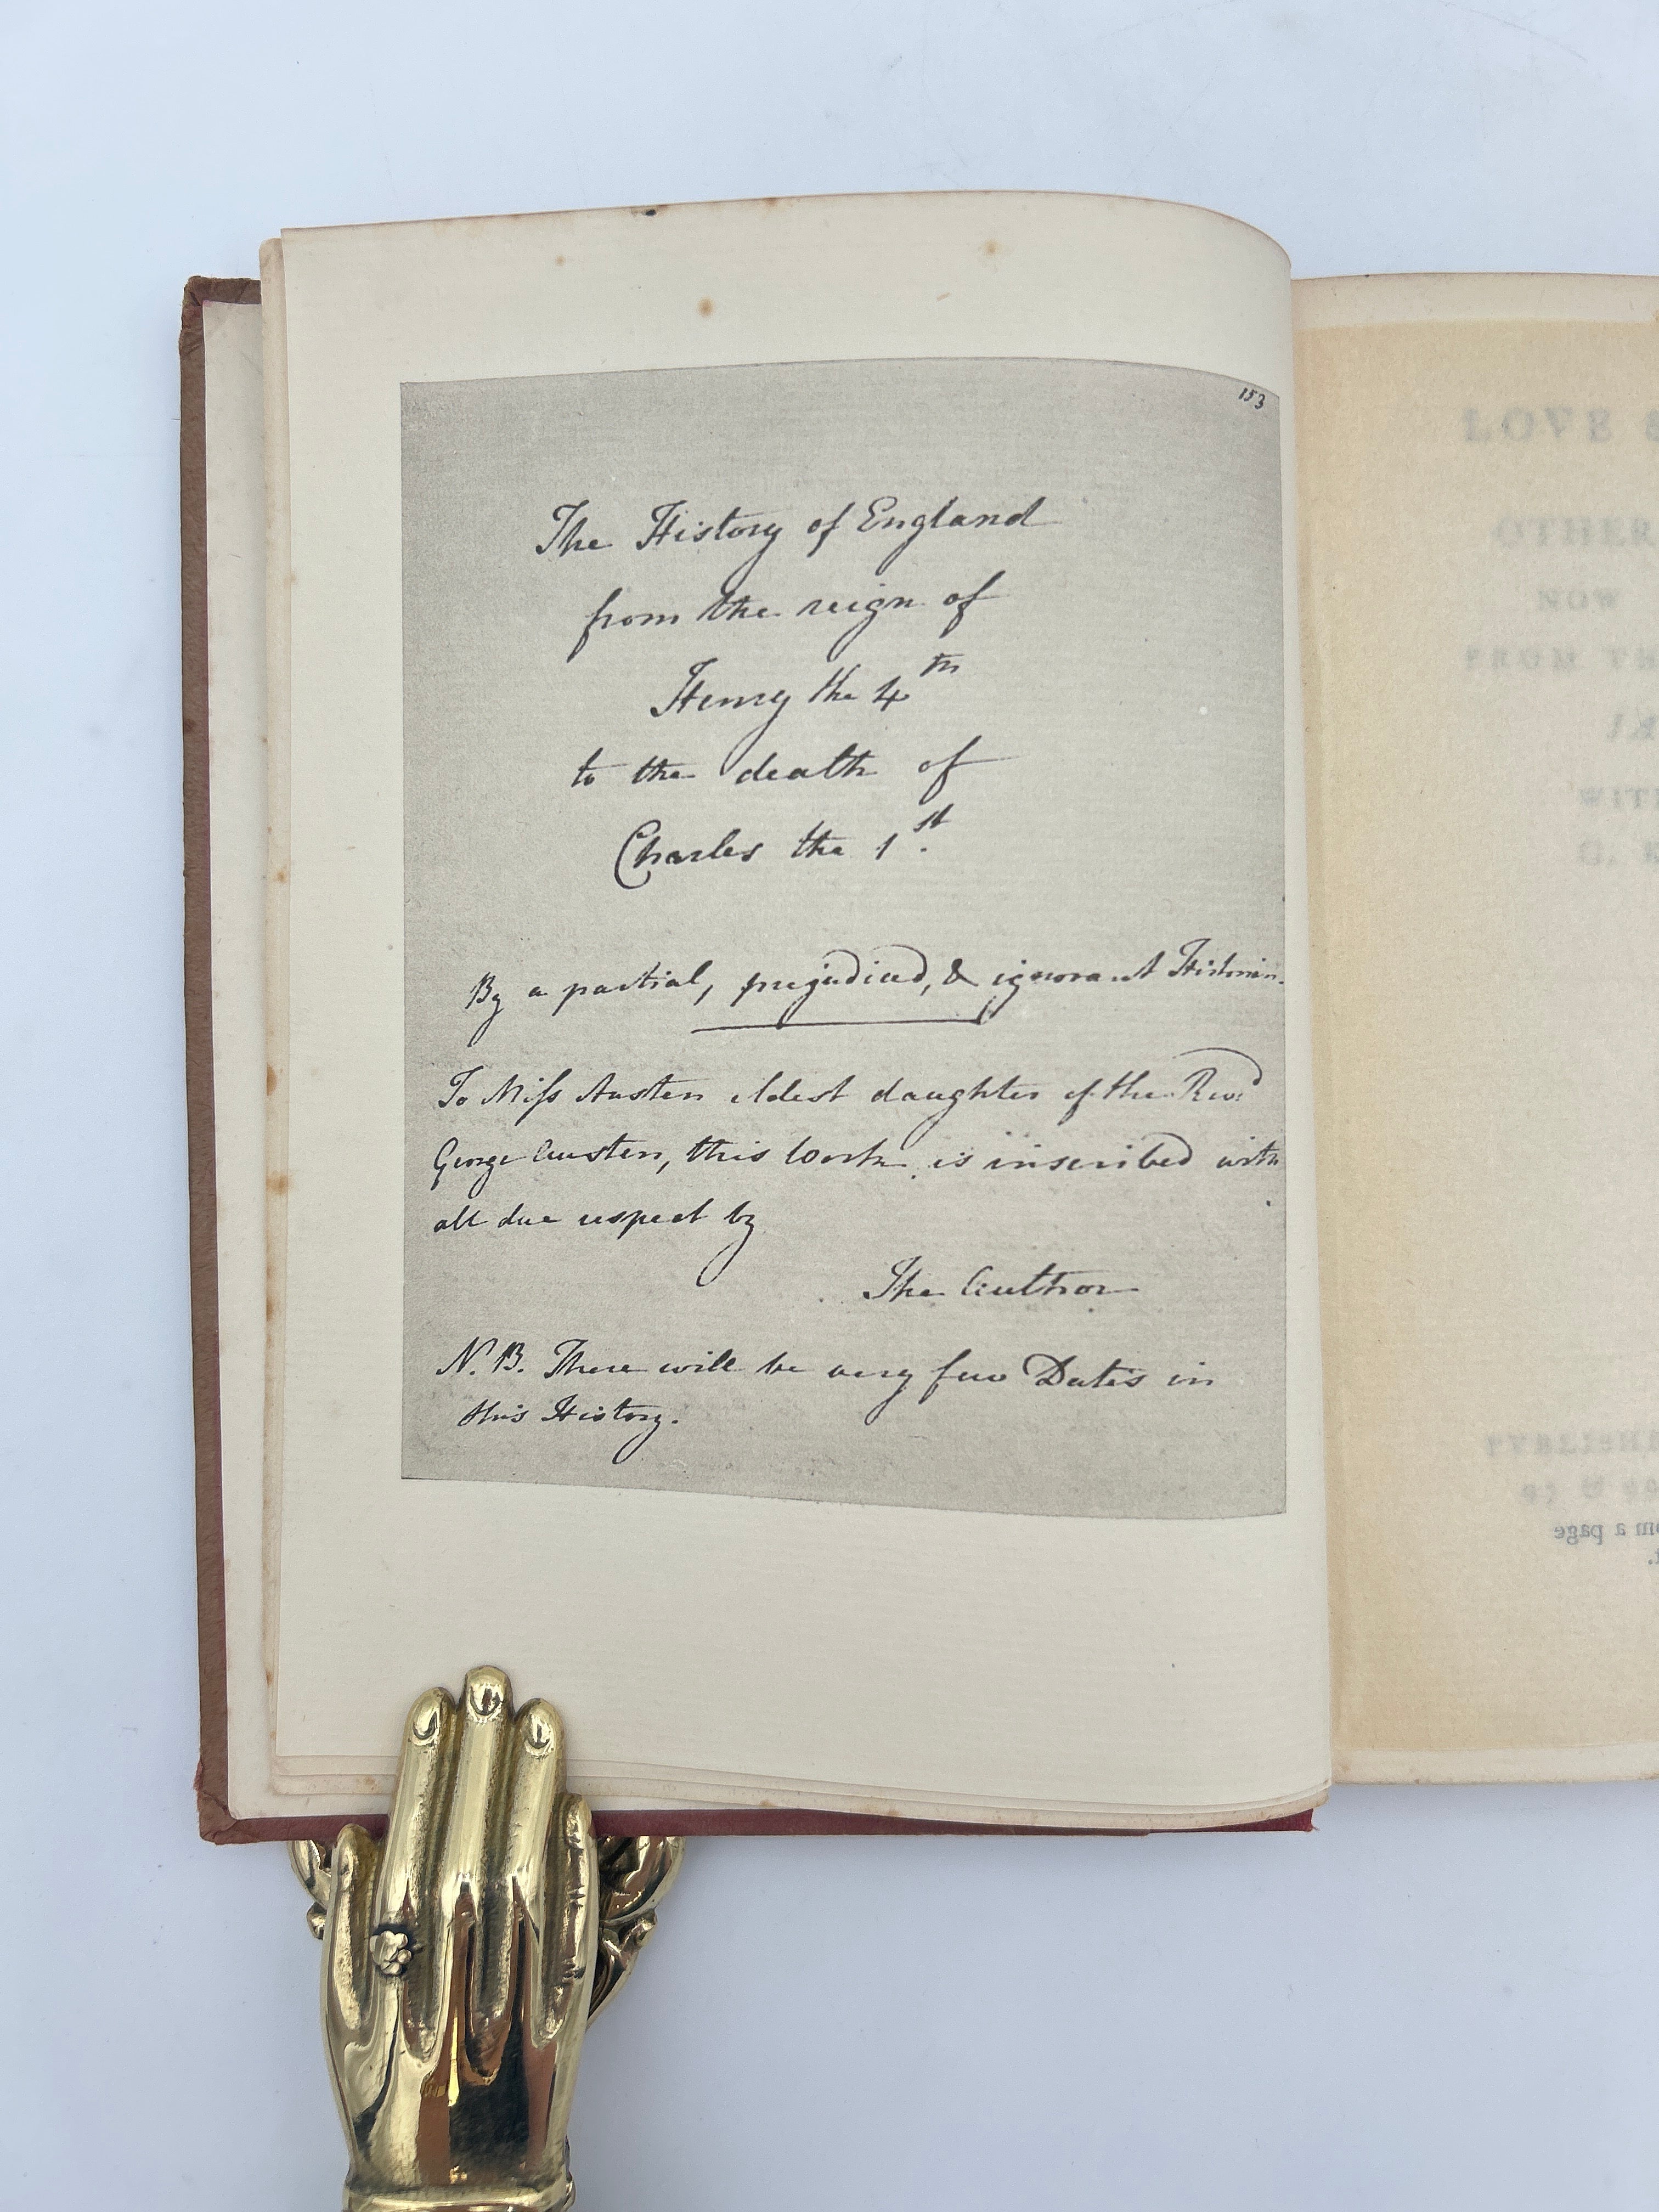 153
The History of England
from the reign of
Henry the 4th
to the death of
Charles the 1st.
By a partial, prejudiced, & ignorant Historian.
To Miſs Austen eldest daughter of the Revd
George Austen, this work is inscribed with
all due respect by
The Author
N.B. There will be very few Dates in
this History.
LOVE &
OTHER
NOW
FROM TH
WITH
G. K
PUBLISHE
om a page